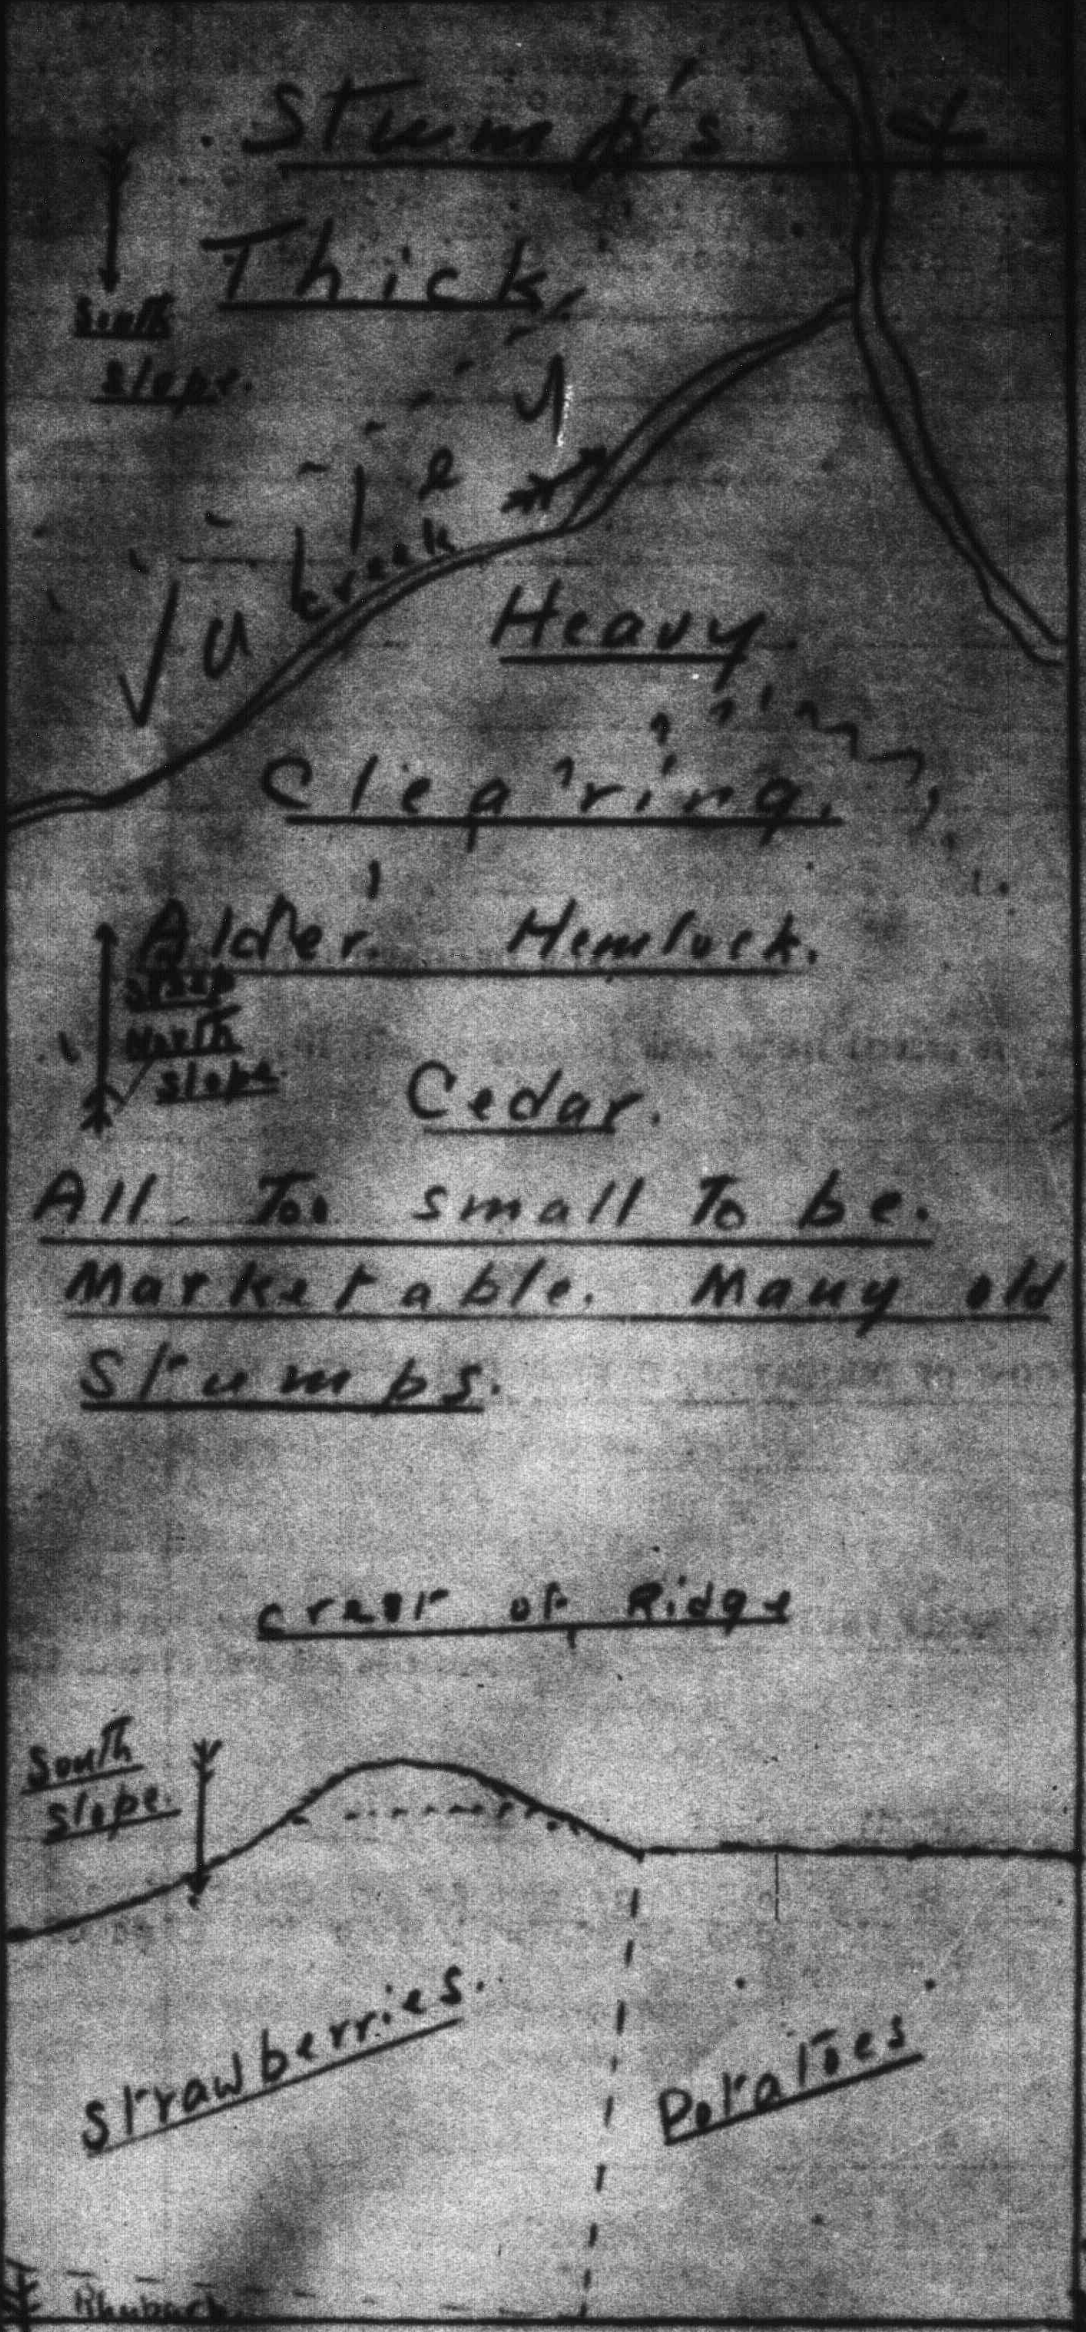 Stump's &
Thick,
South
slope.
Valley
creek
Heavy
Clearing.
Alder. Hemlock.
Steep
North
slope.
Cedar.
All Too small To be.
Marketable. Many old
Stumps.
Crest of Ridge
South
slope.
Strawberries.
Potatoes
Rhubarb.